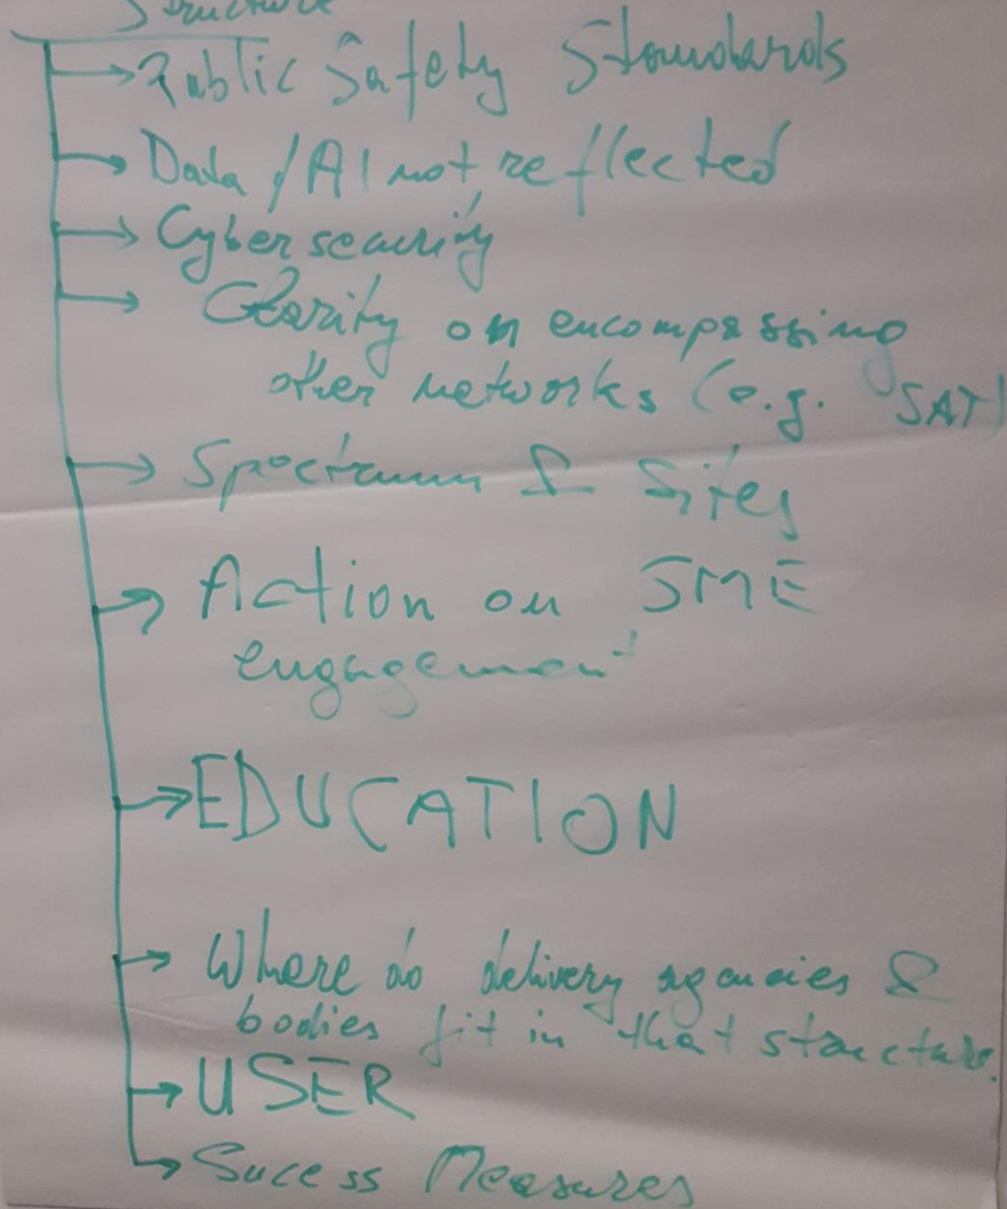 Structure
Public Safety Standards
Data / AI not reflected
Cybersecurity
Clarity on encompassing
other networks (e.g. SAT)
Spectrum & Sites
Action on SME
engagement
EDUCATION
Where do delivery agencies &
bodies fit in that structure.
USER
Sucess Measures